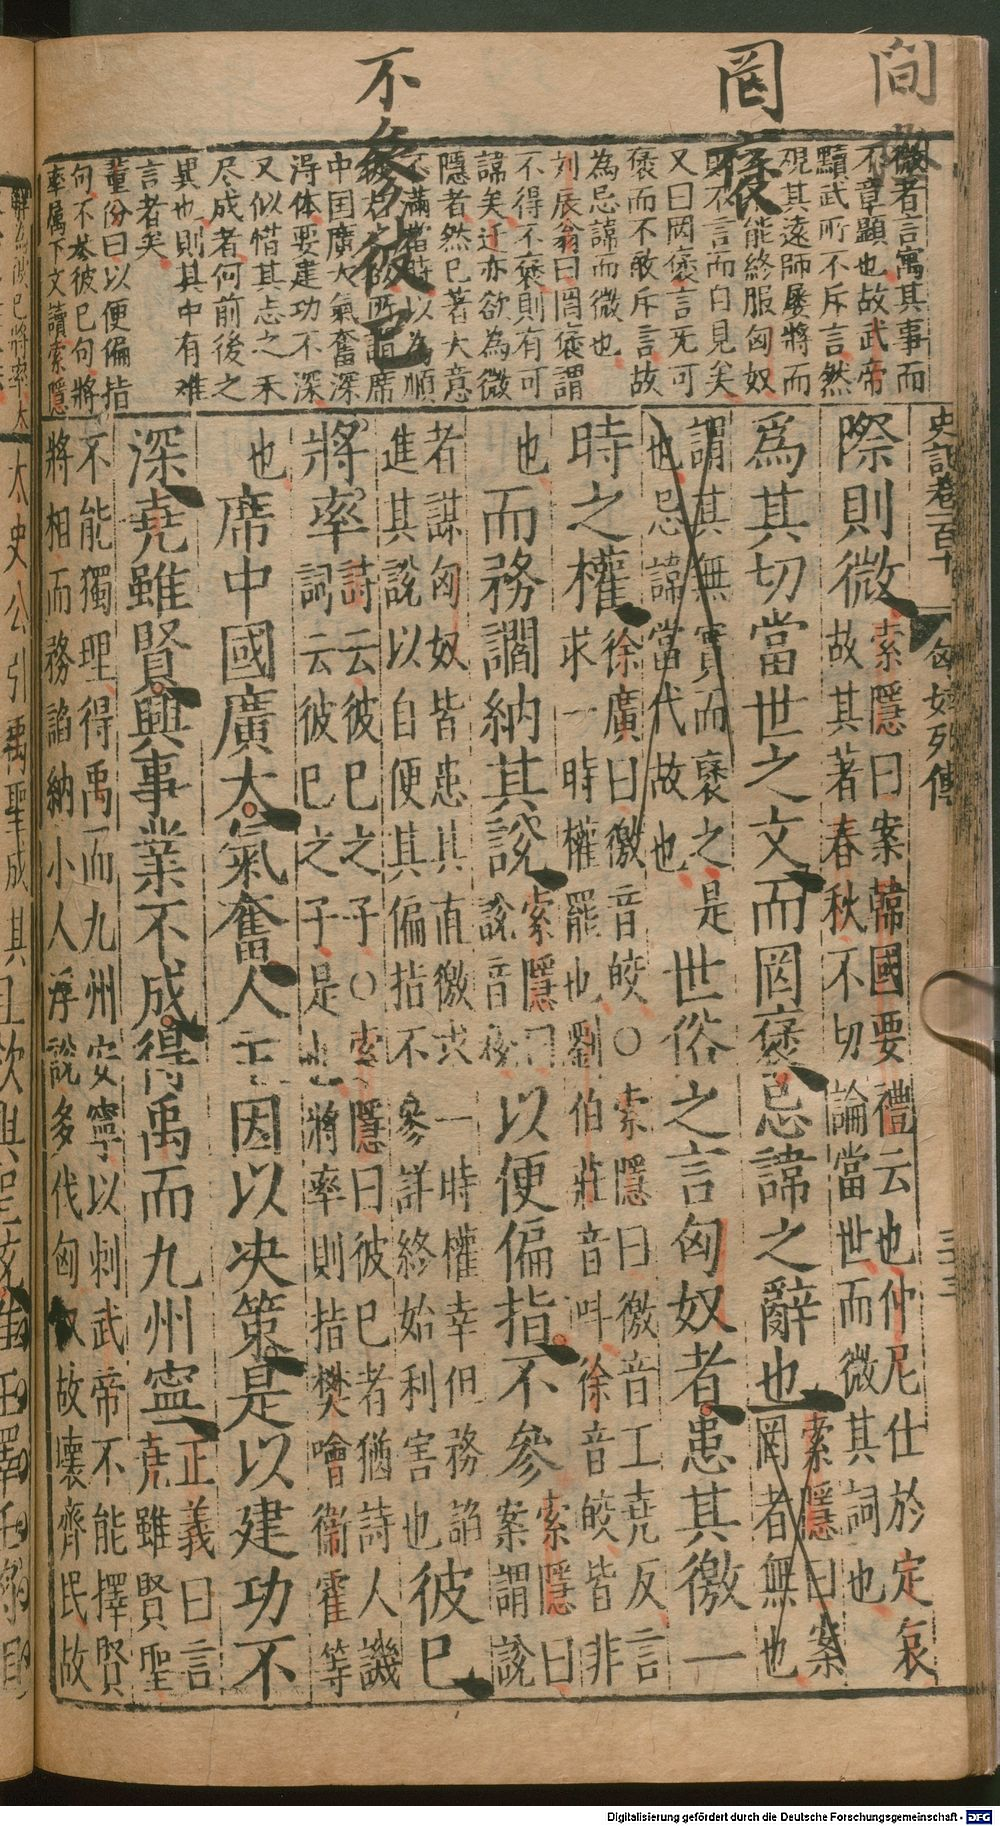 間
岡褒
不參彼己
微者言寓其事而
不章顯也故武帝
黷武所不斥言然
覩其遠師屡將而
能終服匈奴
則不言而自見矣
又曰罔褒言无可
褒而不敢斥言故
為忌諱而微也
刘辰翁曰罔褒謂
不得不褒則有可
諱矣迁亦欲為微
隱者然已著大意
不滿者時以為順
所謂席
中囯廣大氣奮深
淂体要建功不深
又似惜其忠之未
尽成者何前後之
異也則其中有难
言者矣
董份曰以便偏指
句不叅彼已句將
率属下文讀索隱
史記卷百十 匈奴列傳 三十三
際則微索隱曰案韓國要禮云也仲尼仕於定哀
故其著春秋不切論當世而微其詞也
爲其切當世之文而罔褒忌諱之辭也索隱曰案
罔者無也
謂其無實而褒之是
也忌諱當代故也世俗之言匈奴者患其徼一
時之權徐廣曰徼音皎○索隱曰徼音工堯反言
求一時權罷也劉伯莊音叫徐音皎皆非
也而務讇納其說索隱曰
說音稅以便偏指不參索隱曰
案謂說
者謀匈奴皆患其直徼求一時權幸但務諂
進其說以自便其偏指不參詳終始利害也彼已
將率詩云彼已之子○索隱曰彼已者猶詩人譏
詞云彼已之子是也將率則指樊噲衞霍等
也席中國廣大氣奮人主因以决策是以建功不
深堯雖賢興事業不成得禹而九州寧正義曰言
堯雖賢聖
不能獨理得禹而九州安寧以刺武帝不能擇賢
將相而務諂納小人浮說多伐匈奴故壞齊民故
太史公引禹聖成其
Digitalisierung gefördert durch die Deutsche Forschungsgemeinschaft - DFG